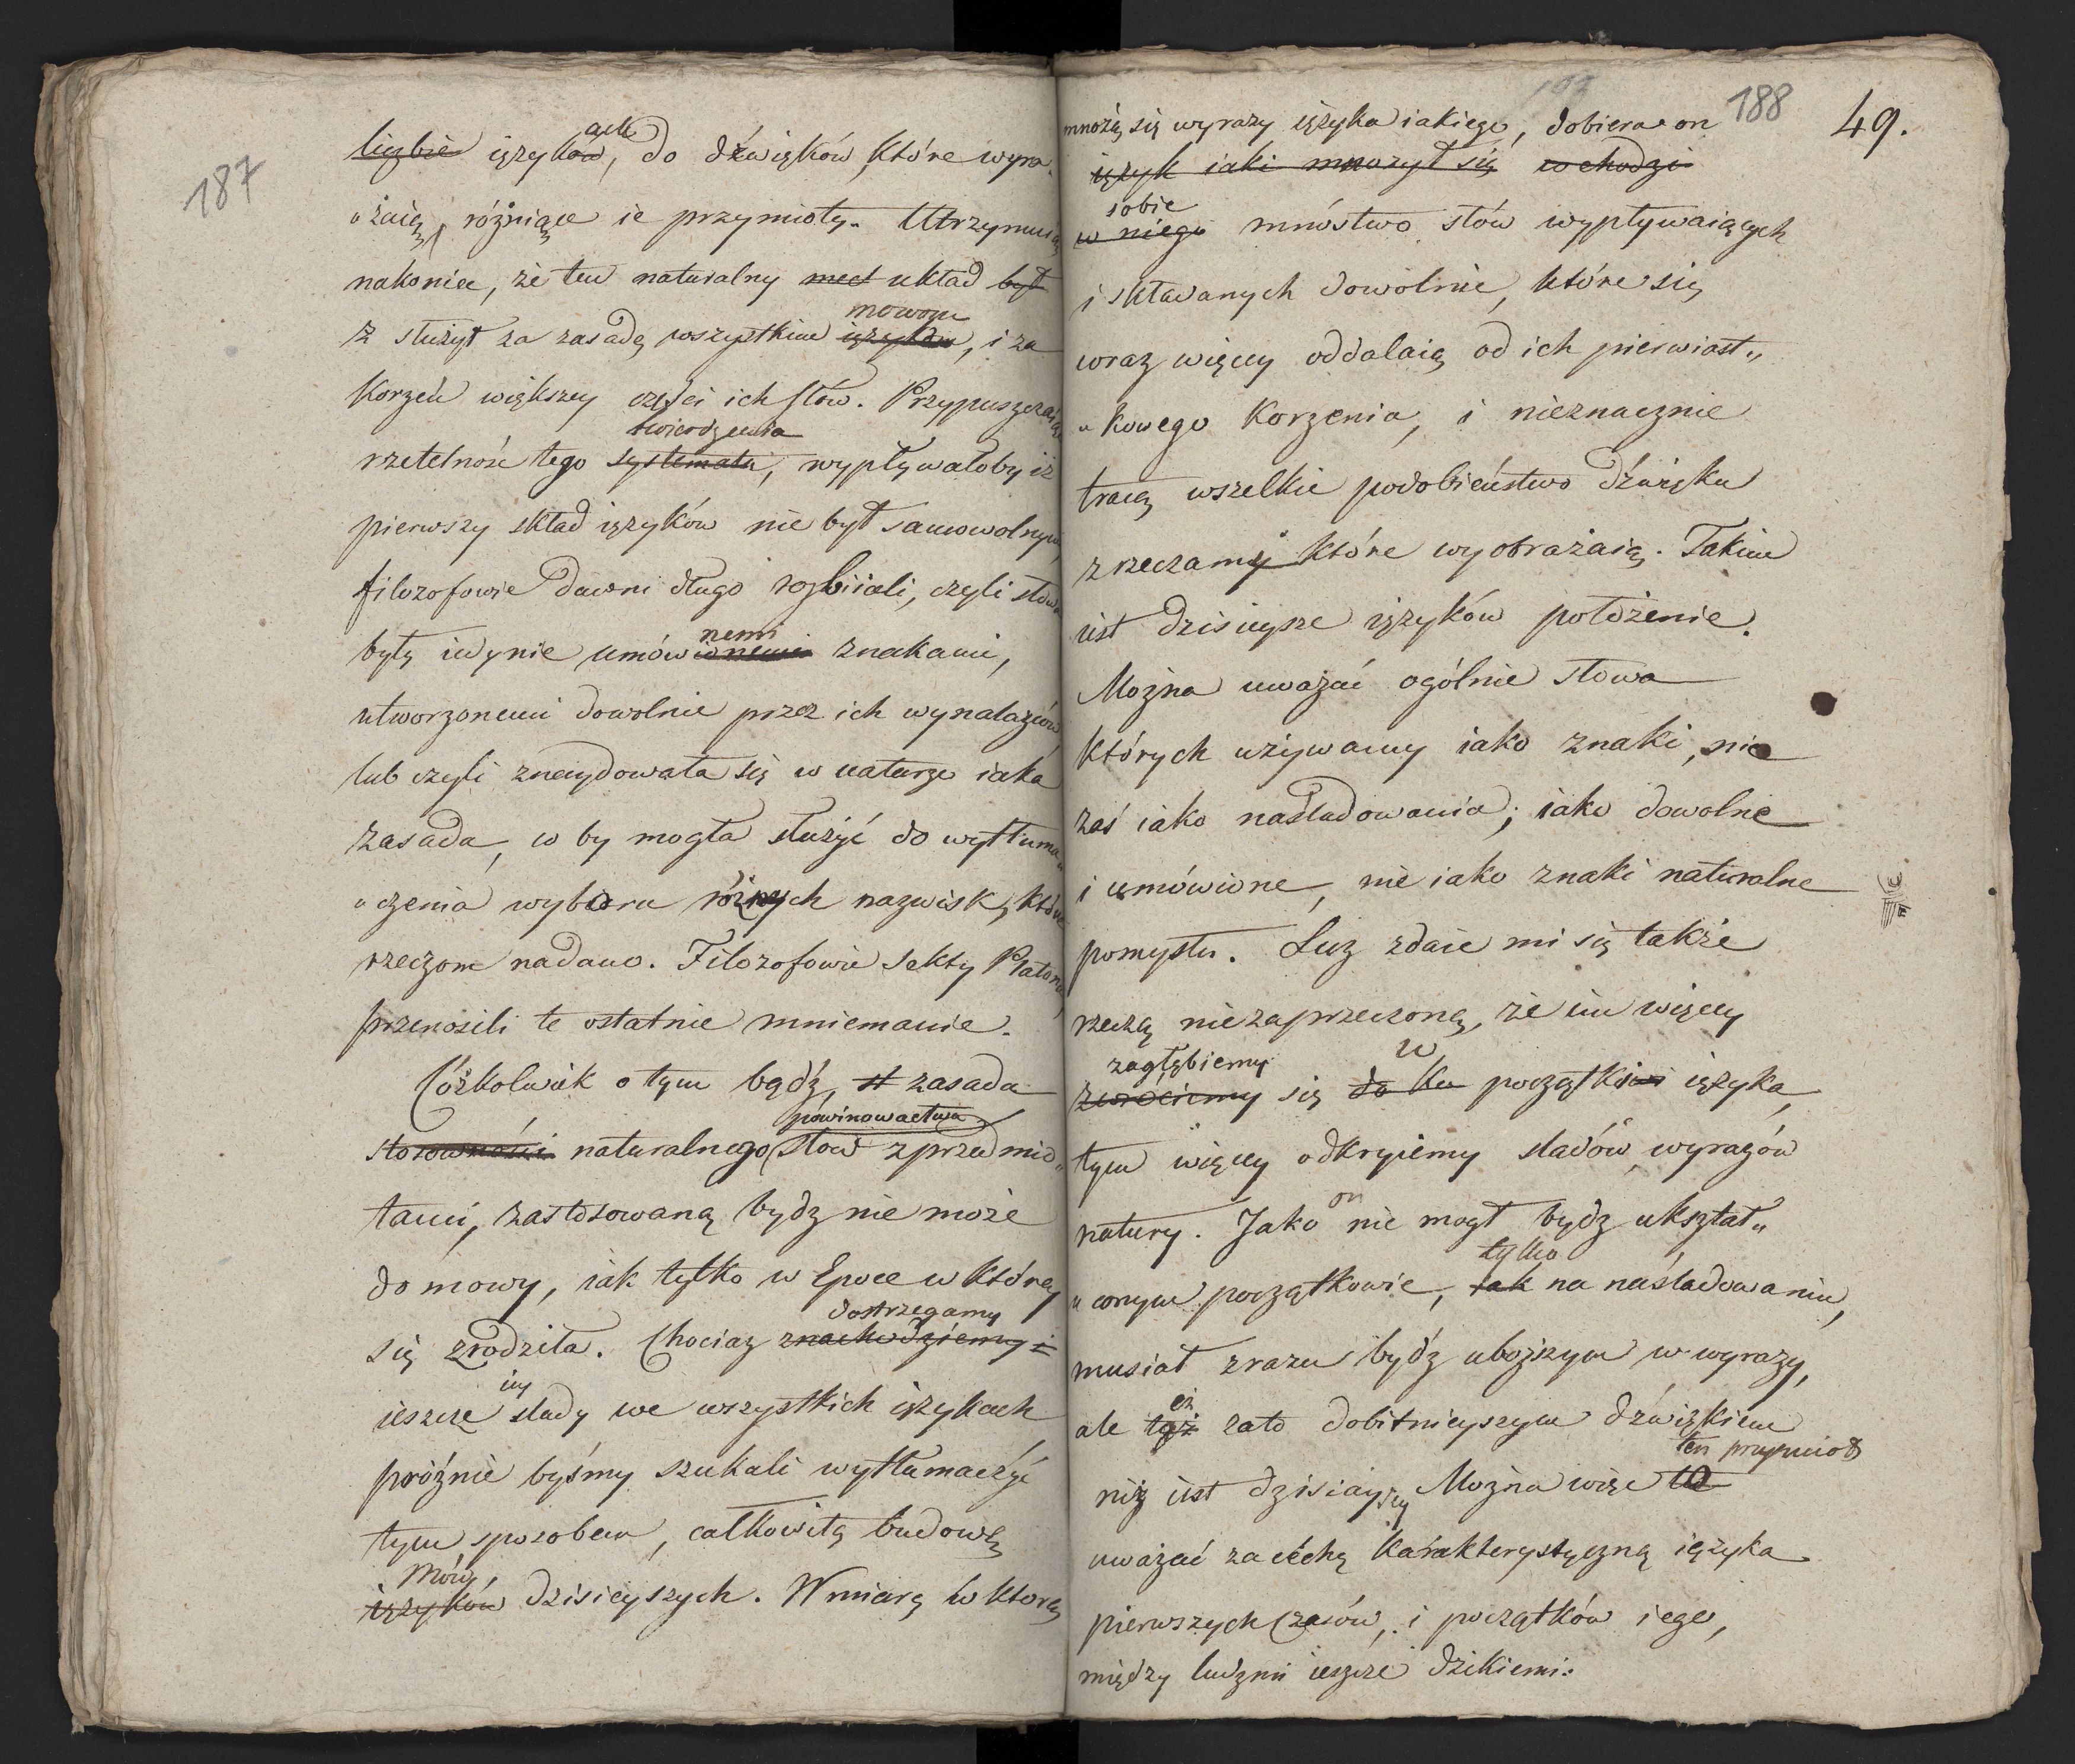 187
liczbie ięzyków, ach do dźwięków, które wyra„
„żaią, różniące ie przymioty. Utrzymuią
nakoniec, że ten naturalny układ był
z służył za zasadę wszystkim ięzykom mowom, i za
Korzeń większey części ich słów. Przypuszczaiąc
rzetelność tego systematu twierdzenia, wypływałoby iż
pierwszy skład ięzyków nie był samowolnym,
filozofowie dawni długo rozbiiali, czyli słowa
były iedynie umówionemi nemi znakami,
utworzonemi dowolnie przez ich wynalazców
lub czyli znaydowała się w naturze iaka
zasada, co by mogła służyć do wytłuma„
„czenia wyboru różnych nazwisk, które
rzeczom nadano. Filozofowie Sekty Platona,
przenosili te ostatnie mniemanie.
Cóżkolwiek o tym bądź, st zasada
stosowności naturalnego powinowactwa słow z przedmio„
tami, zastosowaną bydz nie może
do mowy, iak tylko w Epoce w którey
się zrodziła. Chociaz znachodziemy dostrzegamy i
ieszcze iey slady we wszystkich ięzykach
próżnie byśmy szukali wytłumaczyć
tym sposobem, całkowitą budowę
ięzyków Mów, dzisieyszych. W miarę w ktorą
188
49.
mnożą się wyrazy ięzyka iakiego, dobiera on
ięzyk iaki mnożył się wchodzi
w niego sobie mnóstwo słów wypływaiących
i składanych dowolnie, które się
coraz więcey oddalaią od ich pierwiast„
„kowego Korzenia, i nieznacznie
tracą wszelkie podobieństwo dźwięku
z rzeczamy które wyobrażaią. Takim
iest dzisieysze ięzyków położenie.
Można uważać ogólnie słowa
których używamy iako znaki, nie
zaś iako naśladowania; iako dowolne
i umówione, nie iako znaki naturalne
pomysłu. Lecz zdaie mi się także
rzeczą niezaprzeczoną, że im więcey
zwrociemy zagłębiemy się do ku w początki ięzyka,
tym więcey odkryiemy sladów wyrazów
natury. Jako on nie mogł bydz ukształ„
„conym początkowie, iak tylko na naśladowaniu,
musiał zrazu bydź uboższym w wyrazy,
ale też eż zato dobitnieyszym dźwiękiem
niż iest dzisiay. Można więc to ten przymiot
uważać za cechę karakterystyczną ięzyka
pierwszych czasów, i początków iego,
między ludzmi ieszcze dzikiemi.